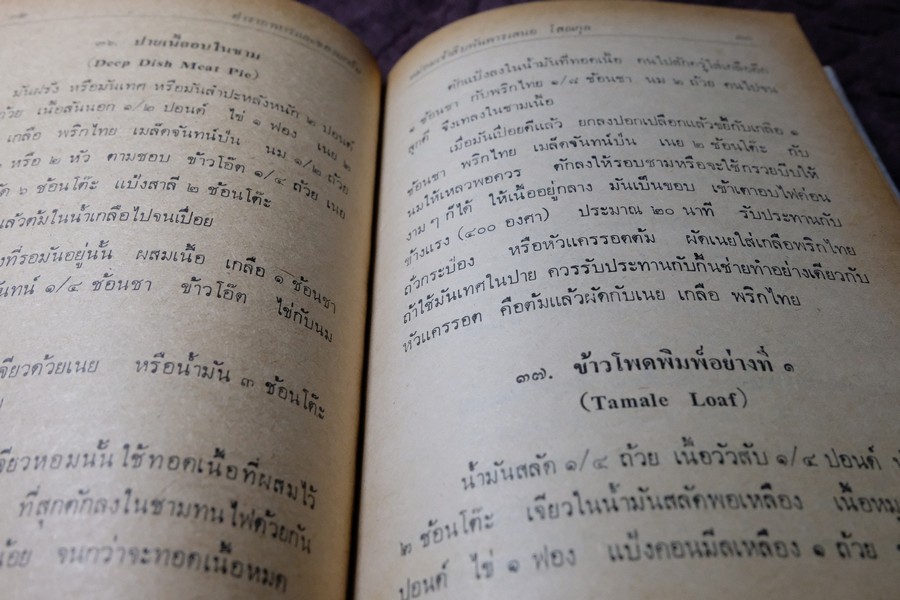 ตำราอาหาร
๓๖. ปายเนื้ออบในชาม
(Deep Dish Meat Pie)
มันฝรั่ง หรือมันเทศ หรือมันสำปะหลังหนัก ๒ ปอนด์
ถ้วย เนื้อสันนอก ๑/๒ ปอนด์ ไข่ ๑ ฟอง เนย ๒
เกลือ พริกไทย เมล็ดจันทน์ป่น นม ๑/๒ ถ้วย
หรือ ๒ หัว ตามชอบ ข้าวโอ๊ต ๑/๔ ถ้วย เนย
๖ ช้อนโต๊ะ แป้งสาลี ๒ ช้อนโต๊ะ
แล้วต้มในน้ำเกลือไปจนเปื่อย
งที่รอมันอยู่นั้น ผสมเนื้อ เกลือ ๑ ช้อนชา
ันทน์ ๑/๔ ช้อนชา ข้าวโอ๊ต ไข่กับนม
จียวด้วยเนย หรือน้ำมัน ๓ ช้อนโต๊ะ
จียวหอมนั้นใช้ทอดเนื้อที่ผสมไว้
ที่สุกตักลงในชามทนไฟด้วยกัน
จนกว่าจะทอดเนื้อหมด
หม่อมเจ้าสืบพันพารเสนอ โสณกุล
ตักแป้งลงในน้ำมันที่ทอดเนื้อ คนไปสักครู่ใส่เกลืออีก
๑ ช้อนชา กับพริกไทย ๑/๘ ช้อนชา นม ๒ ถ้วย คนไปจน
สุกดี จึงเทลงในชามเนื้อ
เมื่อมันเปื่อยดีแล้ว ยกลงปอกเปลือกแล้วขยี้กับเกลือ ๑
ช้อนชา พริกไทย เมล็ดจันทน์ป่น เนย ๒ ช้อนโต๊ะ กับ
นมให้เหลวพอควร ตักลงให้รอบชามหรือจะใช้กรวยบีบให้
งาม ๆ ก็ได้ ให้เนื้ออยู่กลาง มันเป็นขอบ เข้าเตาอบไฟค่อน
ข้างแรง (๔๐๐ องศา) ประมาณ ๒๐ นาที รับประทานกับ
ถั่วกระป๋อง หรือหัวแครรอตต้ม ผัดเนยใส่เกลือพริกไทย
ถ้าใช้มันเทศในปาย ควรรับประทานกับกึ้นช่ายทำอย่างเดียวกับ
หัวแครรอต คือต้มแล้วผัดกับเนย เกลือ พริกไทย
๓๗. ข้าวโพดพิมพ์อย่างที่ ๑
(Tamale Loaf)
น้ำมันสลัด ๑/๔ ถ้วย เนื้อวัวสับ ๑/๔ ปอนด์
๒ ช้อนโต๊ะ เจียวในน้ำมันสลัดพอเหลือง เนื้อหมู
ปอนด์ ไข่ ๑ ฟอง แป้งคอนมีลเหลือง ๑ ถ้วย